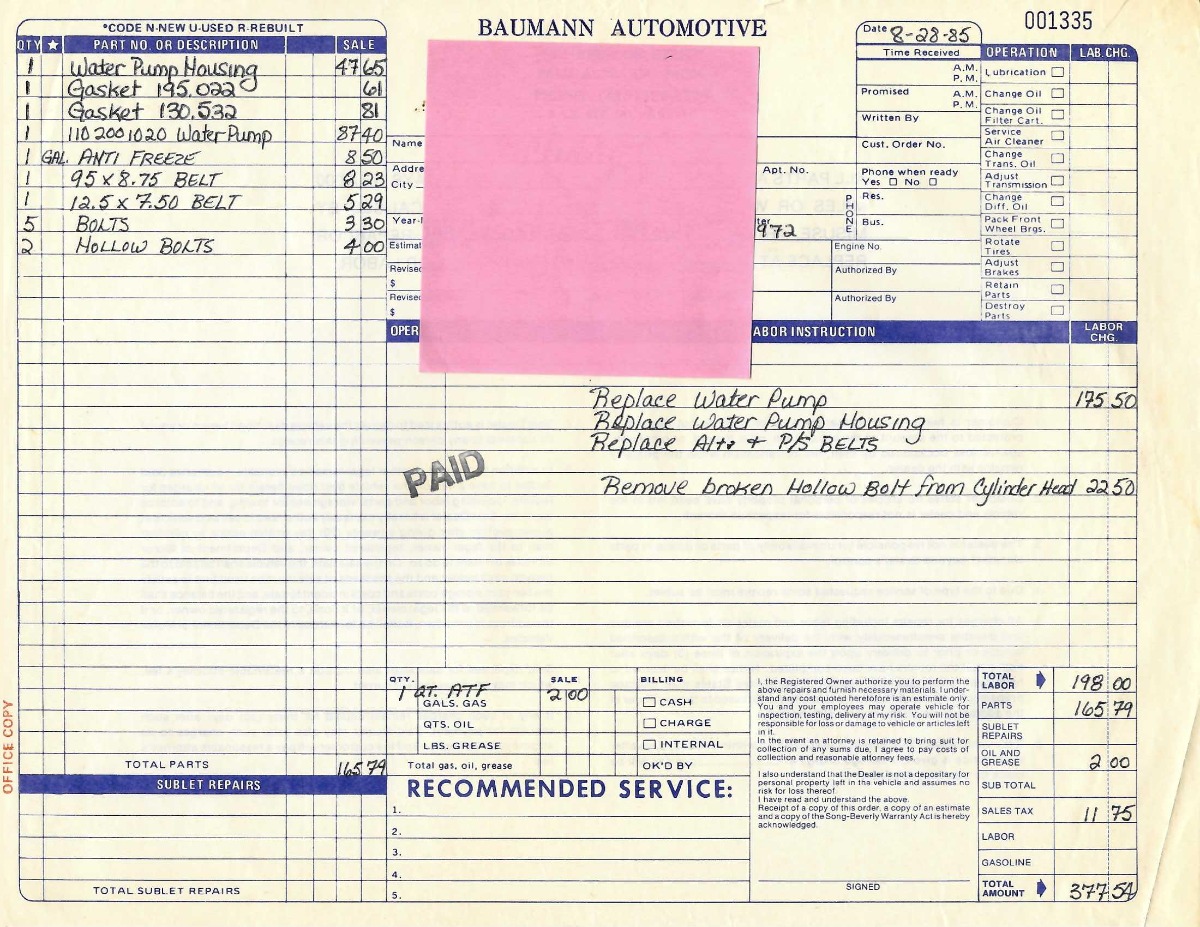 BAUMANN AUTOMOTIVE
001335
*CODE N-NEW U-USED R-REBUILT
QTY ★ PART NO. OR DESCRIPTION SALE
1 Water Pump Housing 47 65
1 Gasket 195.022 61
1 Gasket 130.532 81
1 110 200 1020 Water Pump 87 40
1 GAL. ANTI FREEZE 8 50
1 95 x 8.75 BELT 8 23
1 12.5 x 7.50 BELT 5 29
5 BOLTS 3 30
2 HOLLOW BOLTS 4 00
TOTAL PARTS 165 79
SUBLET REPAIRS
TOTAL SUBLET REPAIRS
OFFICE COPY
Name
Addre
City
Year-
Estimat
Revised
$
Revised
$
Apt. No.
972
PHONE
Date 8-28-85
Time Received
A.M.
P.M.
Promised A.M.
P.M.
Written By
Cust. Order No.
Phone when ready
Yes □ No □
Res.
Bus.
Engine No.
Authorized By
Authorized By
OPERATION LAB. CHG.
Lubrication □
Change Oil □
Change Oil
Filter Cart. □
Service
Air Cleaner □
Change
Trans. Oil □
Adjust
Transmission □
Change
Diff. Oil □
Pack Front
Wheel Brgs. □
Rotate
Tires □
Adjust
Brakes □
Retain
Parts □
Destroy
Parts □
OPER
ABOR INSTRUCTION
LABOR
CHG.
Replace Water Pump 175 50
Replace Water Pump Housing
Replace Altr + P/S BELTS
PAID
Remove broken Hollow Bolt from Cylinder Head 22 50
QTY. SALE
1 QT. ATF 2 00
GALS. GAS
QTS. OIL
LBS. GREASE
Total gas, oil, grease
BILLING
□ CASH
□ CHARGE
□ INTERNAL
OK'D BY
RECOMMENDED SERVICE:
1.
2.
3.
4.
5.
I, the Registered Owner authorize you to perform the
above repairs and furnish necessary materials. I under-
stand any cost quoted heretofore is an estimate only.
You and your employees may operate vehicle for
inspection, testing, delivery at my risk. You will not be
responsible for loss or damage to vehicle or articles left
in it.
In the event an attorney is retained to bring suit for
collection of any sums due, I agree to pay costs of
collection and reasonable attorney fees.
I also understand that the Dealer is not a depositary for
personal property left in the vehicle and assumes no
risk for loss thereof.
I have read and understand the above.
Receipt of a copy of this order, a copy of an estimate
and a copy of the Song-Beverly Warranty Act is hereby
acknowledged.
SIGNED
TOTAL
LABOR 198 00
PARTS 165 79
SUBLET
REPAIRS
OIL AND
GREASE 2 00
SUB TOTAL
SALES TAX 11 75
LABOR
GASOLINE
TOTAL
AMOUNT 377 54